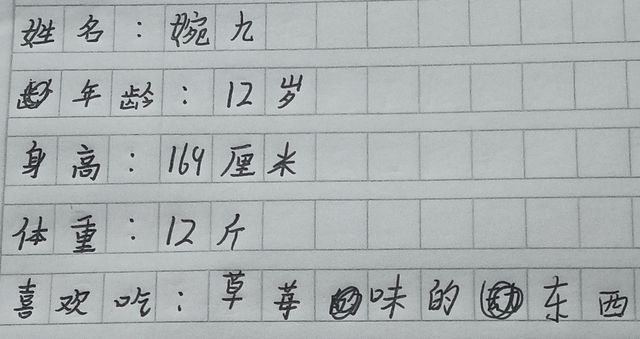 姓名：婉九
年龄：12岁
身高：169厘米
体重：12斤
喜欢吃：草莓味的东西